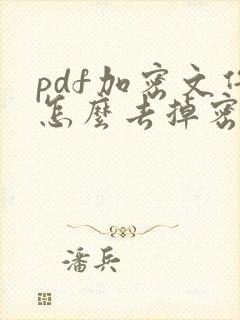 pdf加密文件
怎麼去掉密
潘兵